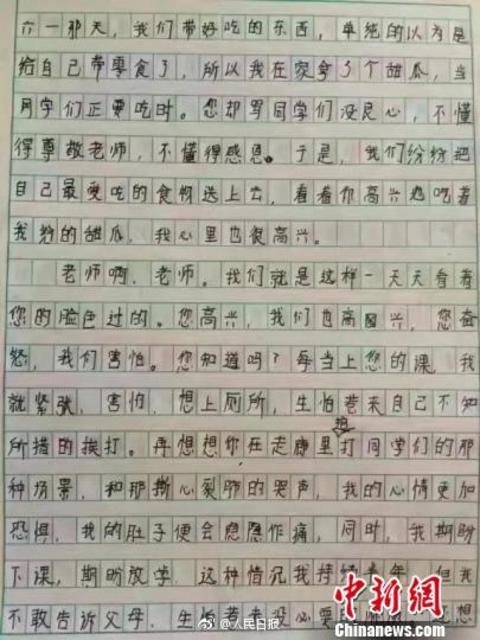 六一那天，我们带好吃的东西，单纯的以为是
给自己带零食了，所以我在家拿了个甜瓜，当
同学们正要吃时。您却骂同学们没良心，不懂
得尊敬老师，不懂得感恩。于是，我们纷纷把
自己最爱吃的食物送上去，看着你高兴地吃着
我的甜瓜，我心里也很高兴。
老师啊，老师。我们就是这样一天天看着
您的脸色过的。您高兴，我们也高兴，您奋
怒，我们害怕。您知道吗？每当上您的课，我
就紧张，害怕，想上厕所，生怕惹来自己不知
所措的挨打。再想想你在走廊里掐打同学们的那
种场景，和那撕心裂肺的哭声，我的心情更加
恐惧，我的肚子便会隐隐作痛，同时，我期盼
下课，期盼放学，这种情况我持续
但我
不敢告诉父母，生怕惹来没必要
想
中新网
WWW.CHINANEWS.COM
@人民日报